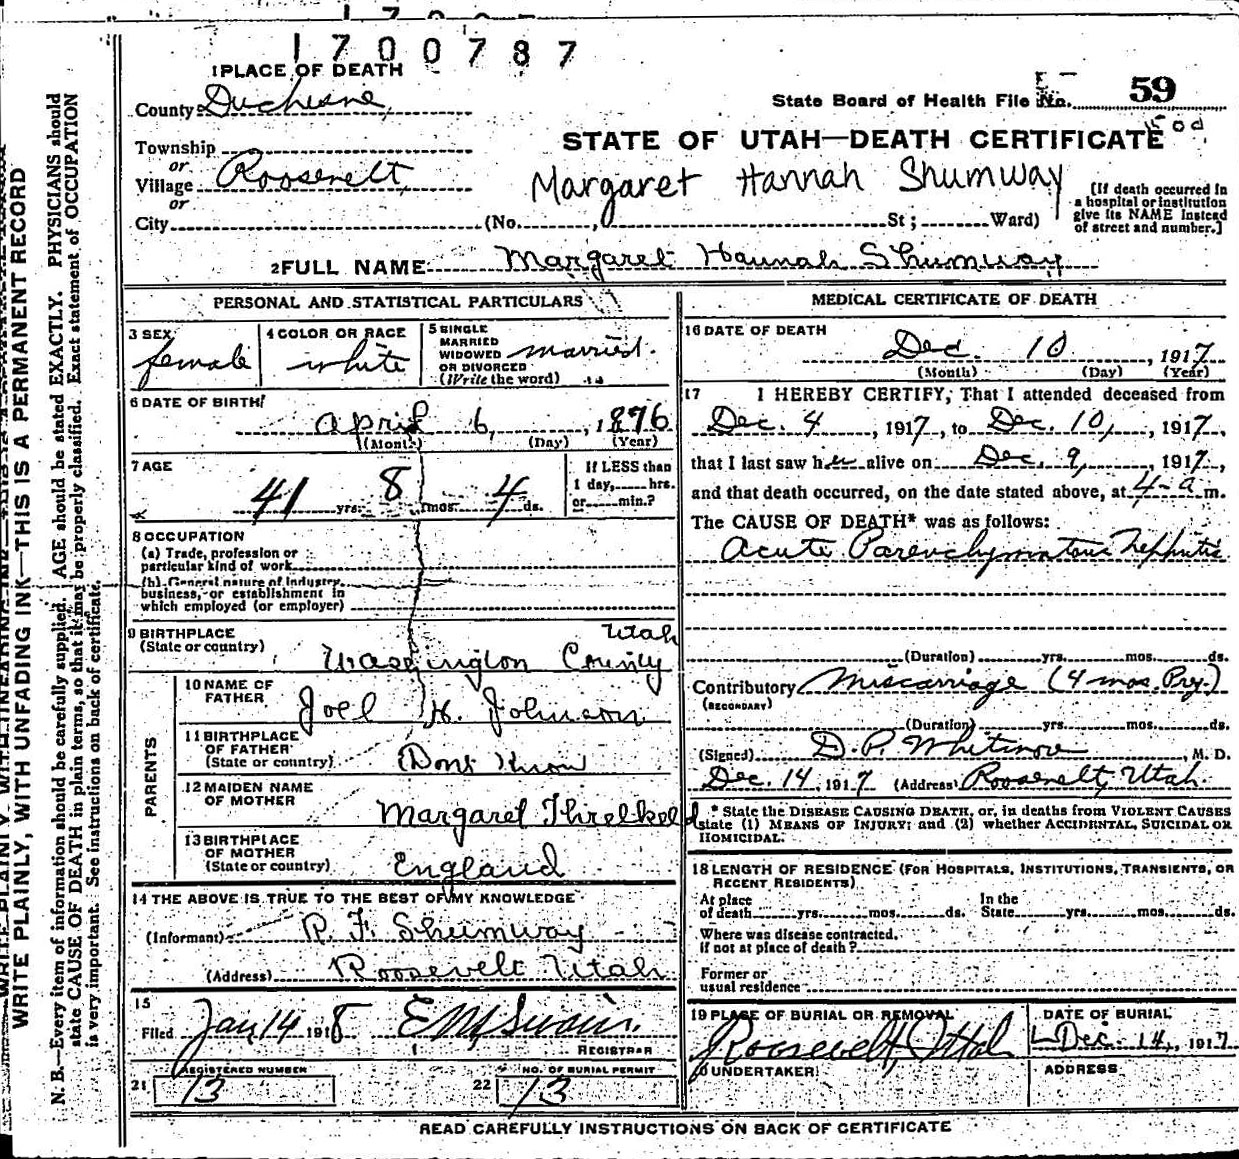 1700787
1 PLACE OF DEATH
County Duchesne,
State Board of Health File No. 59
STATE OF UTAH—DEATH CERTIFICATE
Township
or
Village Roosevelt,
or
City (No. , St ; Ward)
Margaret Hannah Shumway
(If death occurred in
a hospital or institution
give its NAME instead
of street and number.]
2 FULL NAME Margaret Hannah Shumway
PERSONAL AND STATISTICAL PARTICULARS
3 SEX female
4 COLOR OR RACE white
5 SINGLE
MARRIED
WIDOWED
OR DIVORCED
(Write the word) married.
6 DATE OF BIRTH
April 6, 1876
(Month) (Day) (Year)
7 AGE
41 yrs. 8 mos. 4 ds.
If LESS than
1 day, hrs.
or min.?
8 OCCUPATION
(a) Trade, profession or
particular kind of work
(b) General nature of industry,
business, or establishment in
which employed (or employer)
9 BIRTHPLACE
(State or country) Washington County Utah
PARENTS
10 NAME OF
FATHER Joel H. Johnson
11 BIRTHPLACE
OF FATHER
(State or country) Dont Know
12 MAIDEN NAME
OF MOTHER Margaret Threlkeld
13 BIRTHPLACE
OF MOTHER
(State or country) England
14 THE ABOVE IS TRUE TO THE BEST OF MY KNOWLEDGE
(Informant) P. F. Shumway
(Address) Roosevelt Utah
15
Filed Jan 14 1918
REGISTRAR
REGISTERED NUMBER
21 13
NO. OF BURIAL PERMIT
22 13
MEDICAL CERTIFICATE OF DEATH
16 DATE OF DEATH
Dec. 10, 1917
(Month) (Day) (Year)
17 I HEREBY CERTIFY, That I attended deceased from
Dec. 4, 1917, to Dec. 10, 1917,
that I last saw her alive on Dec. 9, 1917,
and that death occurred, on the date stated above, at 4 a m.
The CAUSE OF DEATH* was as follows:
Acute Parenchymatous Nephritis
(Duration) yrs. mos. ds.
Contributory Miscarriage (4 mos. Preg.)
(SECONDARY)
(Duration) yrs. mos. ds.
(Signed) D. P. Whitmore, M. D.
Dec. 14, 1917 (Address) Roosevelt, Utah
* State the DISEASE CAUSING DEATH, or, in deaths from VIOLENT CAUSES
state (1) MEANS OF INJURY; and (2) whether ACCIDENTAL, SUICIDAL OR
HOMICIDAL.
18 LENGTH OF RESIDENCE (FOR HOSPITALS, INSTITUTIONS, TRANSIENTS, OR
RECENT RESIDENTS)
At place
of death yrs. mos. ds.
In the
State yrs. mos. ds.
Where was disease contracted,
if not at place of death?
Former or
usual residence
19 PLACE OF BURIAL OR REMOVAL
Roosevelt, Utah
DATE OF BURIAL
Dec. 14, 1917
UNDERTAKER
ADDRESS
READ CAREFULLY INSTRUCTIONS ON BACK OF CERTIFICATE
WRITE PLAINLY, WITH UNFADING INK—THIS IS A PERMANENT RECORD
N. B.—Every item of information should be carefully supplied. AGE should be stated EXACTLY. PHYSICIANS should
state CAUSE OF DEATH in plain terms, so that it may be properly classified. Exact statement of OCCUPATION
is very important. See instructions on back of certificate.